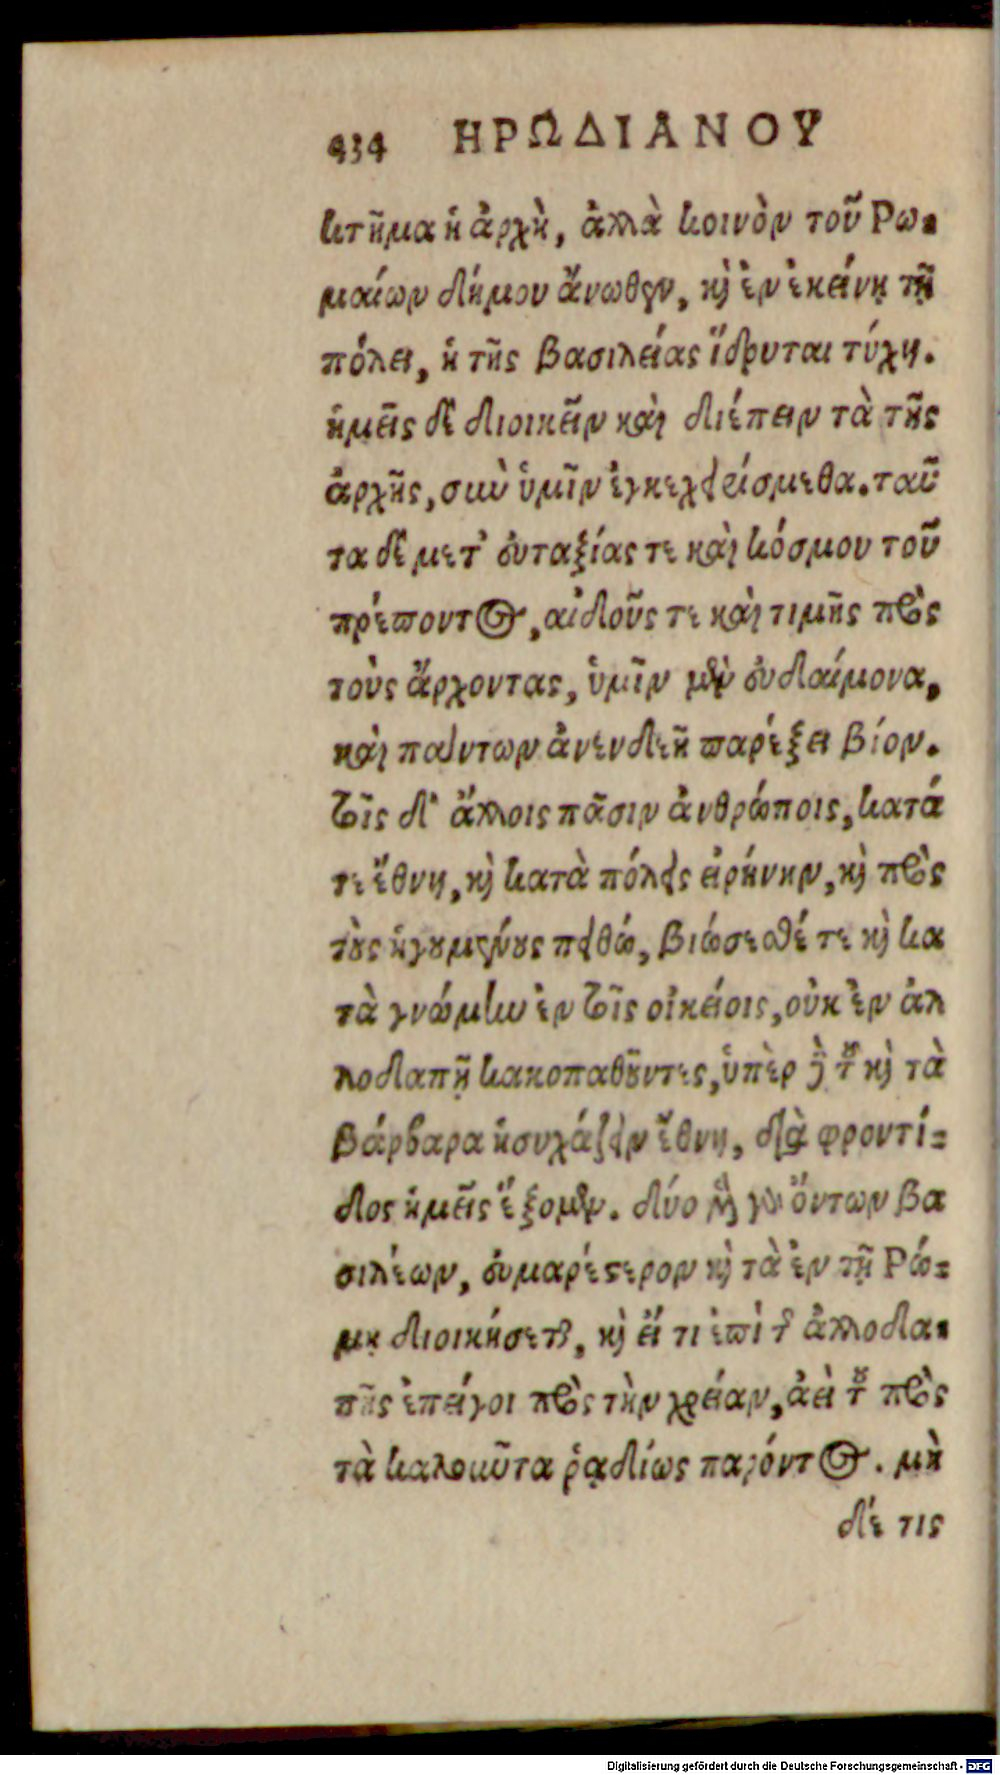 434 ΗΡΩΔΙΑΝΟΥ
κτῆμα ἡ ἀρχὴ, ἀλλὰ κοινὸν τοῦ Ρω-
μαίων δήμου ἄνωθεν, κὶ ἐν ἐκείνῃ τῇ
πόλει, ἡ τῆς βασιλείας ἵδρυται τύχη.
ἡμεῖς δὲ διοικεῖν καὶ διέπειν τὰ τῆς
ἀρχῆς, σὺν ὑμῖν ἐγκεχειρίσμεθα. ταῦ
τα δὲ μετ' εὐταξίας τε καὶ κόσμου τοῦ
πρέποντος, αἰδοῦς τε καὶ τιμῆς πρὸς
τοὺς ἄρχοντας, ὑμῖν μὲν εὐδαίμονα,
καὶ πάντων ἀνενδεῆ παρέξει βίον.
τοῖς δ' ἄλλοις πᾶσιν ἀνθρώποις, κατά
τε ἔθνη, κὶ κατὰ πόλεις εἰρήνην, κὶ πρὸς
τοὺς ἡγουμένους πειθώ, βιώσεσθέ τε κὶ κα
τὰ γνώμην ἐν τοῖς οἰκείοις, οὐκ ἐν ἀλ
λοδαπῇ κακοπαθοῦντες, ὑπὲρ δὲ τοῦ κὶ τὰ
βάρβαρα ἡσυχάζειν ἔθνη, διὰ φροντί-
δος ἡμεῖς ἕξομεν. δύο γὰρ ὄντων βα
σιλέων, εὐμαρέστερον κὶ τὰ ἐν τῇ Ρώ-
μῃ διοικήσεται, κὶ εἴ τι ἐπὶ τῆς ἀλλοδα-
πῆς ἐπείγοι πρὸς τὴν χρείαν, ἀεὶ τοῦ πρὸς
τὰ καλοῦντα ῥᾳδίως παρόντος. μη
δέ τις
Digitalisierung gefördert durch die Deutsche Forschungsgemeinschaft - DFG